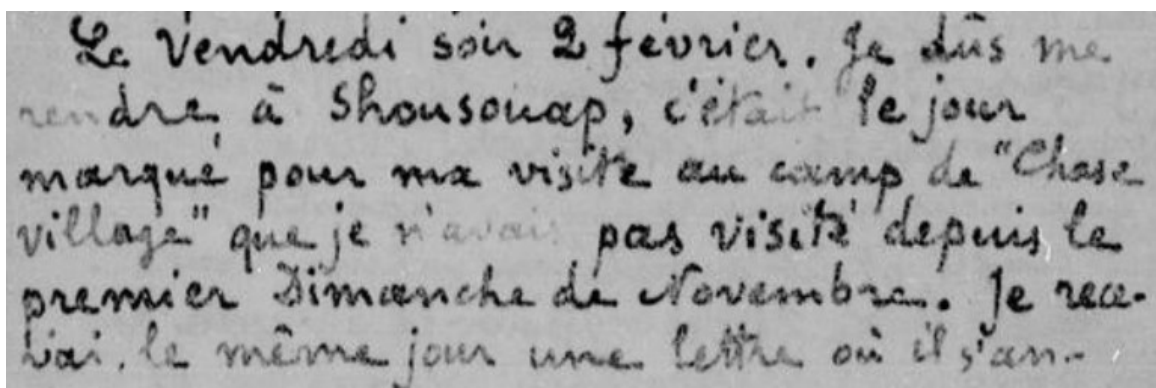 Le Vendredi soir 2 février. Je dûs me
rendre à Shousouap, c'était le jour
marqué pour ma visite au camp de "Chase
village" que je n'avais pas visité depuis le
premier Dimanche de Novembre. Je rece-
vai le même jour une lettre où il s'an-